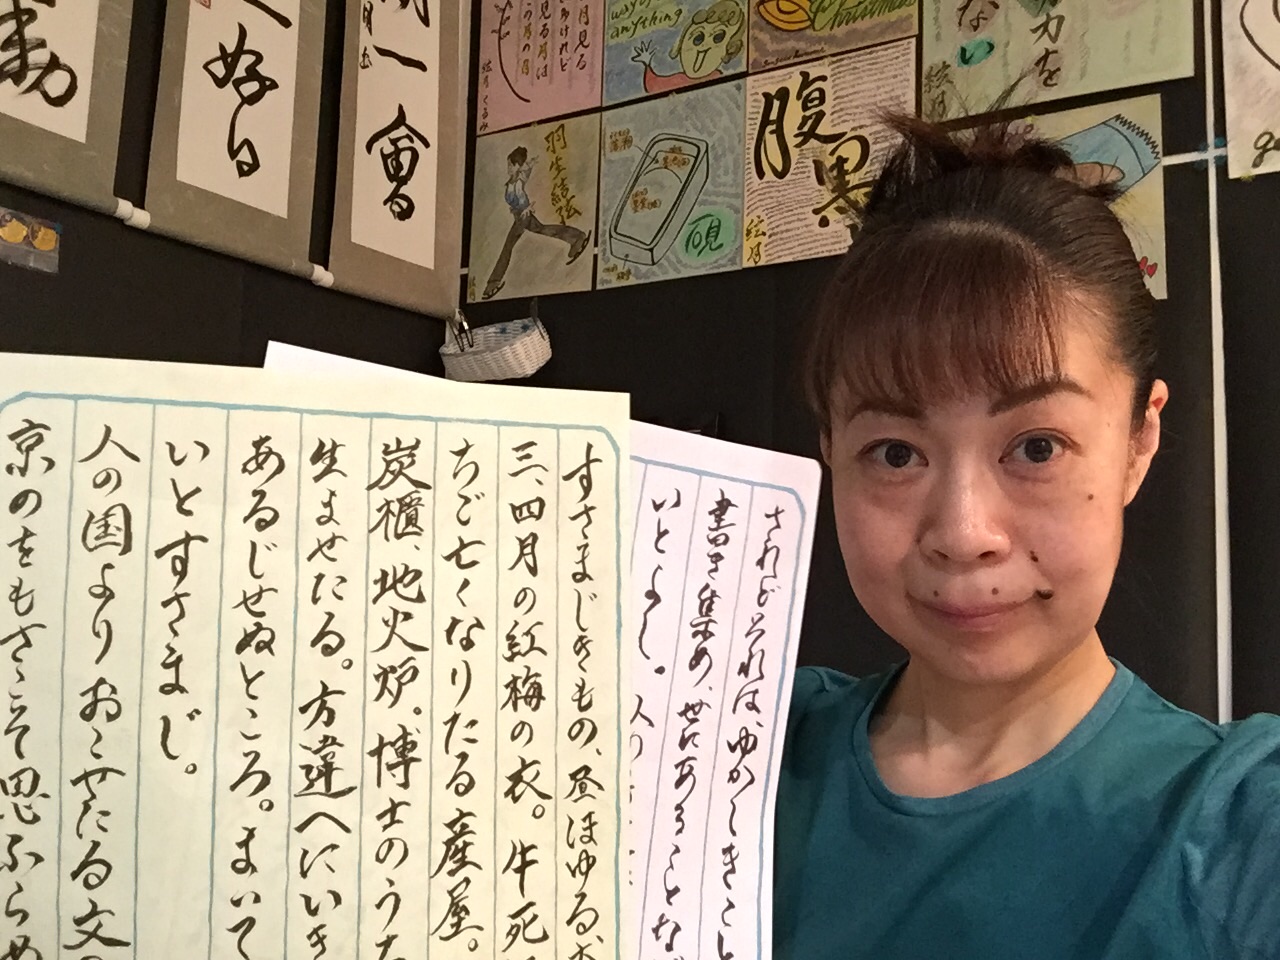 日々好日
期一會
月見る
見る月は
この月の月
way of
anything
Christmas
ない
力を
羽生結弦
硯
腹黒
絵月
されどそれは、ゆかしきこと
書き集め、世にあることな
いとよし。人の
すさまじきもの、昼ほゆる
三、四月の紅梅の衣。牛死
ちご亡くなりたる産屋。
炭櫃、地火炉。博士のうち
生ませたる。方違へにいき
あるじせぬところ。まいて
いとすさまじ。
人の国よりおこせたる文の
京のをもさこそ思ふらめ